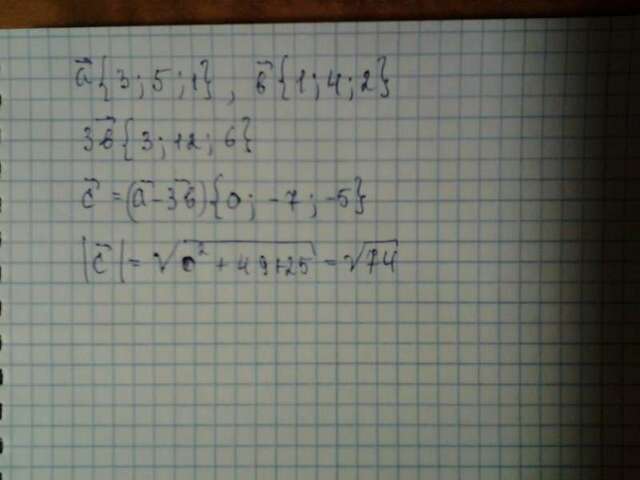 a⃗{3; 5; 1}, в⃗{1; 4; 2}
3в⃗{3; 12; 6}
c⃗ = (a⃗ - 3в⃗){0; -7; -5}
|c⃗| = √(0² + 49 + 25) = √74